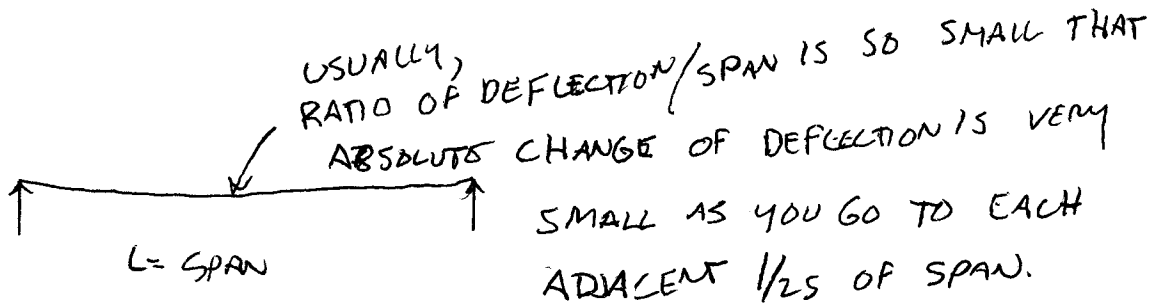 USUALLY,
RATIO OF DEFLECTION/SPAN IS SO SMALL THAT
ABSOLUTE CHANGE OF DEFLECTION IS VERY
SMALL AS YOU GO TO EACH
ADJACENT 1/25 OF SPAN.
L= SPAN